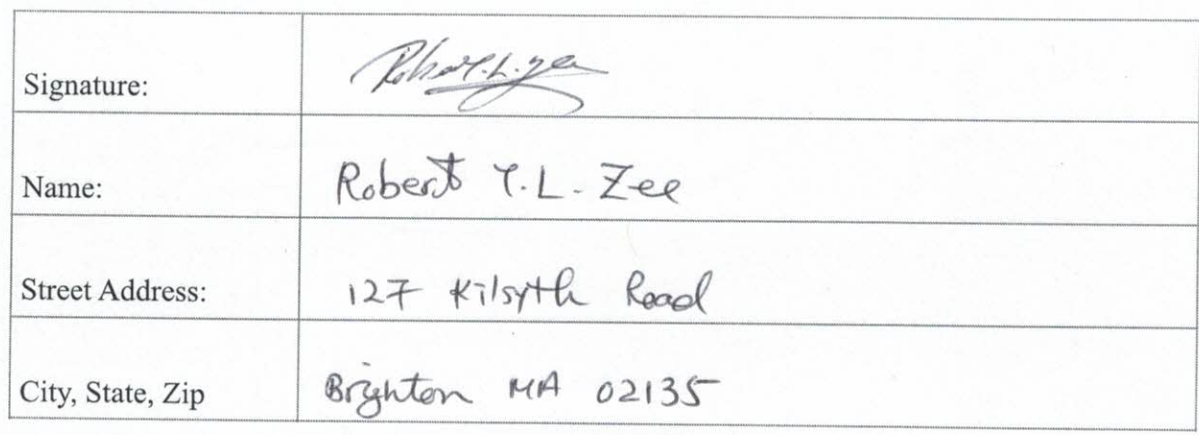 Signature: Robert Y.L. Zee
Name: Robert Y.L. Zee
Street Address: 127 Kilsyth Road
City, State, Zip Brighton MA 02135